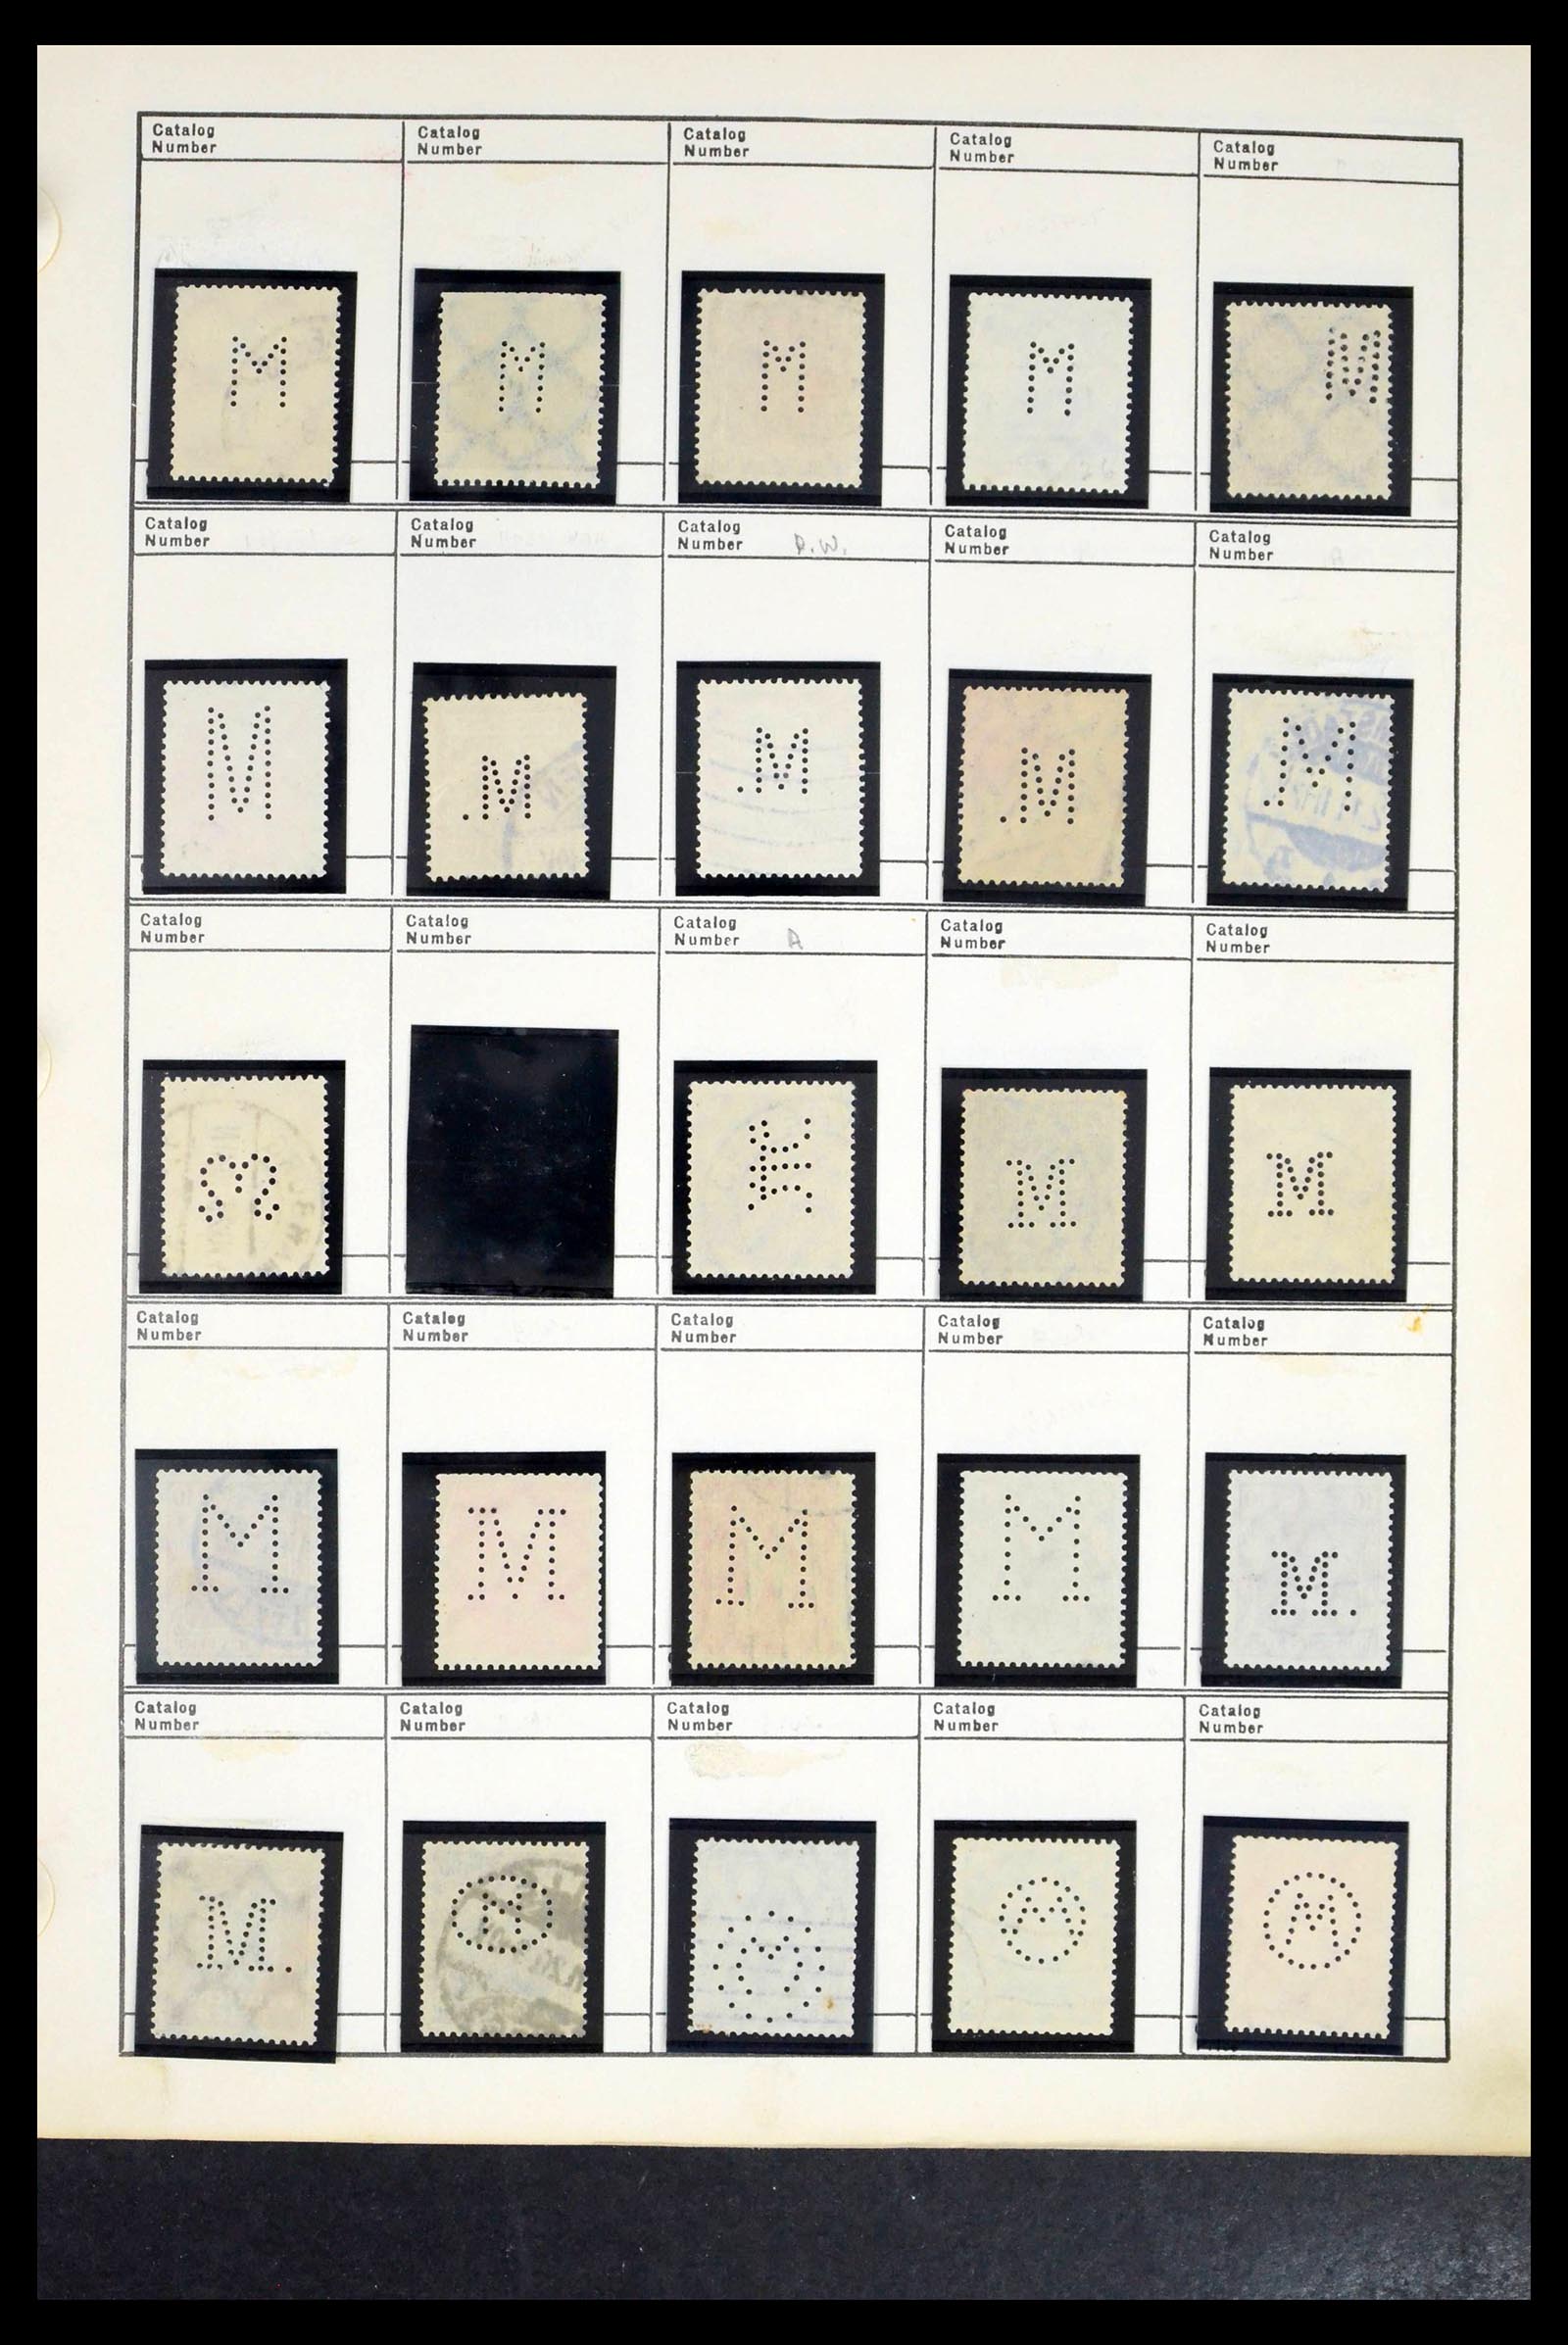 Catalog Number
Catalog Number
Catalog Number
Catalog Number
Catalog Number
M
M
M
M
M
Catalog Number
Catalog Number
Catalog Number P.W.
Catalog Number
Catalog Number A
M
.M
.M
.M
.M
Catalog Number
Catalog Number
Catalog Number A
Catalog Number
Catalog Number
M
M
M
Catalog Number
Catalog Number
Catalog Number
Catalog Number
Catalog Number
M
M
M
M
M.
Catalog Number
Catalog Number
Catalog Number
Catalog Number
Catalog Number
M.
M
M
M
M